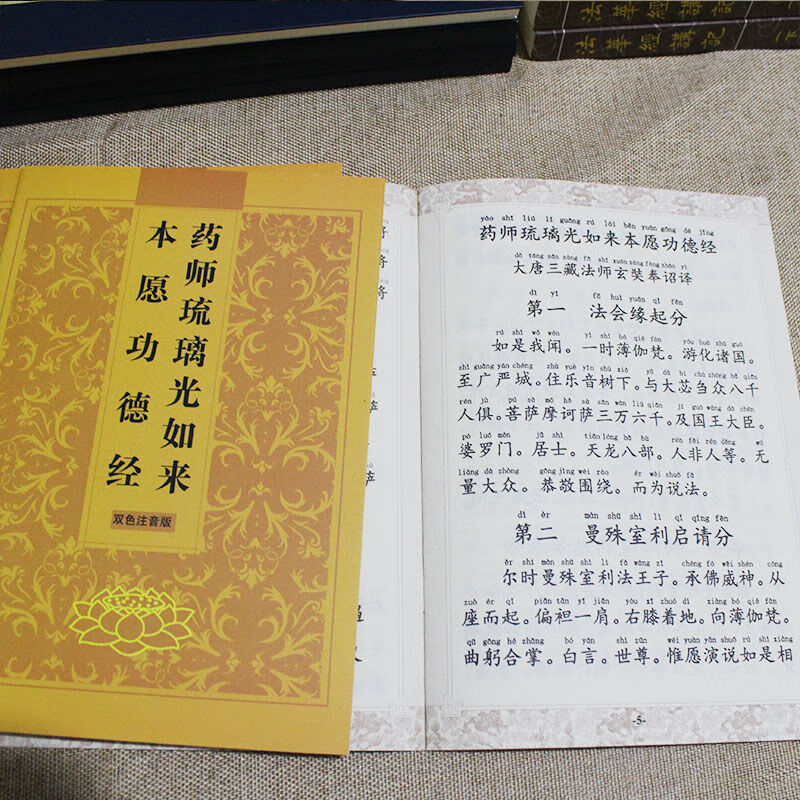 法華經講記
法華經講記 (下
药师琉璃光如来
本愿功德经
双色注音版
将
将
萨
萨
yào shī liú lí guāng rú lái běn yuàn gōng dé jīng
药师琉璃光如来本愿功德经
dà táng sān zàng fǎ shī xuán zàng fèng zhào yì
大唐三藏法师玄奘奉诏译
dì yī fǎ huì yuán qǐ fēn
第一 法会缘起分
rú shì wǒ wén yì shí bó qié fàn yóu huà zhū guó
如是我闻。一时薄伽梵。游化诸国。
zhì guǎng yán chéng zhù yuè yīn shù xià yǔ dà bì chú zhòng bā qiān
至广严城。住乐音树下。与大苾刍众八千
rén jù pú sà mó hē sà sān wàn liù qiān jí guó wáng dà chén
人俱。菩萨摩诃萨三万六千。及国王大臣。
pó luó mén jū shì tiān lóng bā bù rén fēi rén děng wú
婆罗门。居士。天龙八部。人非人等。无
liàng dà zhòng gōng jìng wéi rào ér wèi shuō fǎ
量大众。恭敬围绕。而为说法。
dì èr màn shū shì lì qǐ qǐng fēn
第二 曼殊室利启请分
ěr shí màn shū shì lì fǎ wáng zǐ chéng fó wēi shén cóng
尔时曼殊室利法王子。承佛威神。从
zuò ér qǐ piān tǎn yì jiān yòu xī zhuó dì xiàng bó qié fàn
座而起。偏袒一肩。右膝着地。向薄伽梵。
qū gōng hé zhǎng bó yán shì zūn wéi yuàn yǎn shuō rú shì xiàng
曲躬合掌。白言。世尊。惟愿演说如是相
-5-